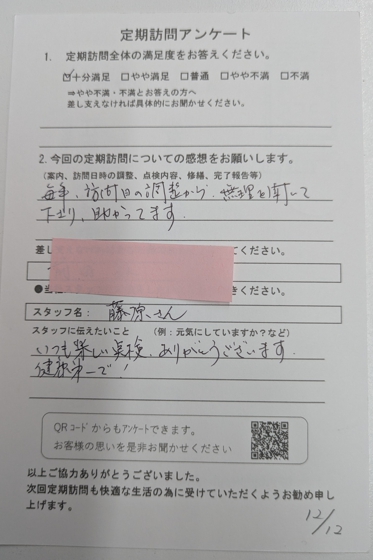 定期訪問アンケート
1. 定期訪問全体の満足度をお答えください。
☑十分満足 □やや満足 □普通 □やや不満 □不満
⇒やや不満・不満とお答えの方へ
差し支えなければ具体的にお聞かせください。
2.今回の定期訪問についての感想をお願いします。
（案内、訪問日時の調整、点検内容、修繕、完了報告等）
毎年、訪問日の調整から、無理を聞いて
下さり、助かってます。
差し
ください。
●当
ください。
スタッフ名： 藤原さん
スタッフに伝えたいこと （例：元気にしていますか？など）
いつも楽しい点検、ありがとうございます。
健康第一で！
QRｺｰﾄﾞからもｱﾝｹｰﾄできます。
お客様の思いを是非お聞かせください
以上ご協力ありがとうございました。
次回定期訪問も快適な生活の為に受けていただくようお勧め申し
上げます。
12/12